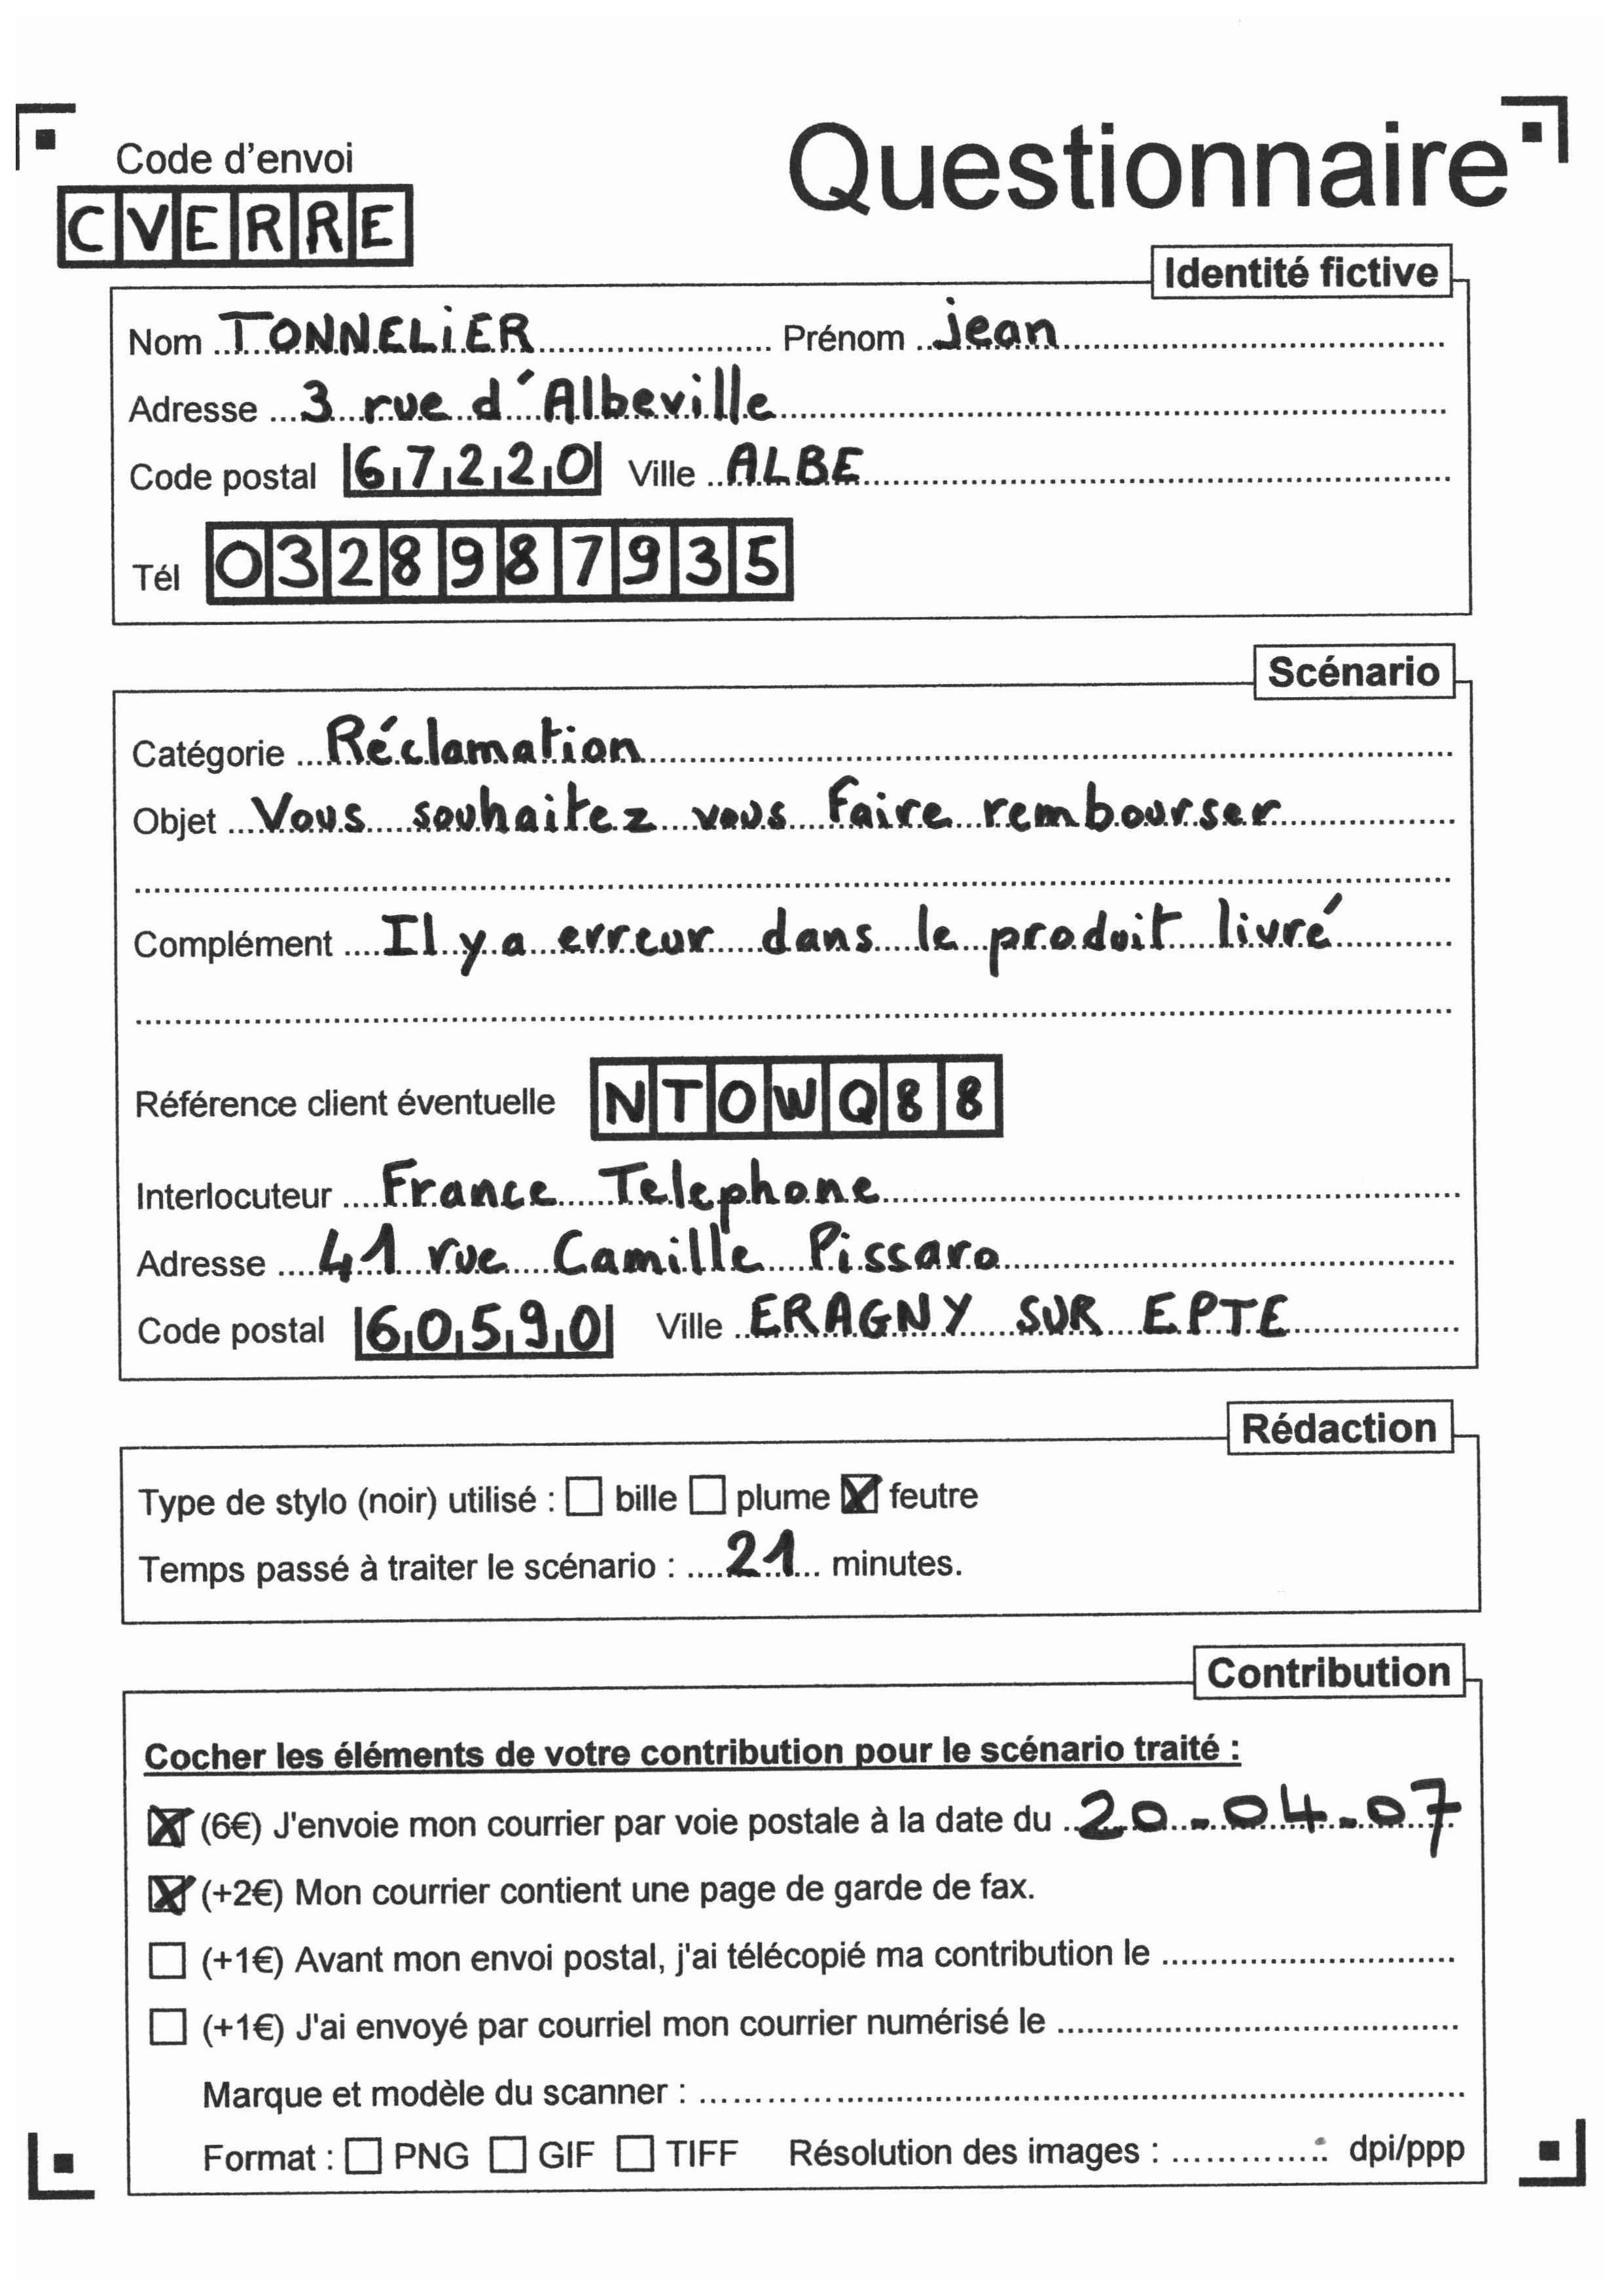 Code d'envoi
Questionnaire
CVERRE
Identité fictive
Nom TONNELiER Prénom jean
Adresse 3 rue d'Albeville
Code postal 67220 Ville ALBE
Tél 0328987935
Scénario
Catégorie Réclamation
Objet Vous souhaitez vous faire rembourser
Complément Il y a erreur dans le produit livré
Référence client éventuelle NTOWQ88
Interlocuteur France Telephone
Adresse 41 rue Camille Pissaro
Code postal 60590 Ville ERAGNY SUR EPTE
Rédaction
Type de stylo (noir) utilisé : ☐ bille ☐ plume ☒ feutre
Temps passé à traiter le scénario : 21 minutes.
Contribution
Cocher les éléments de votre contribution pour le scénario traité :
☒ (6€) J'envoie mon courrier par voie postale à la date du 20-04-07
☒ (+2€) Mon courrier contient une page de garde de fax.
☐ (+1€) Avant mon envoi postal, j'ai télécopié ma contribution le
☐ (+1€) J'ai envoyé par courriel mon courrier numérisé le
Marque et modèle du scanner :
Format : ☐ PNG ☐ GIF ☐ TIFF Résolution des images : dpi/ppp